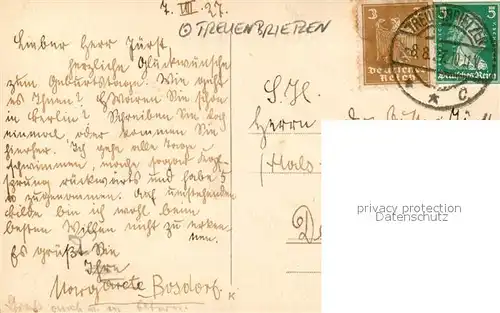 7. VIII. 27.
⊙ TREUENBRIETZEN
Lieber Herr Fürst,
herzliche Glückwünsche
zum Geburtstage. Wie geht
es Ihnen? Waren Sie schon
in Berlin? Schreiben Sie doch
einmal, oder kommen Sie
hierher. Ich gehe alle Tage
schwimmen, mache sogar Kopf-
sprung rückwärts und habe 5
zugenommen. Auf umstehendem
Bilde bin ich wohl beim
besten Willen nicht zu erken-
nen.
Es grüßt Sie
Ihre
Margarete Bosdorf.
3
Deutsches
Reich
5
5
Deutsches Reich
TREUENBRIETZEN
8.8.27
* * C
S. Hl.
Herrn
privacy protection
Datenschutz